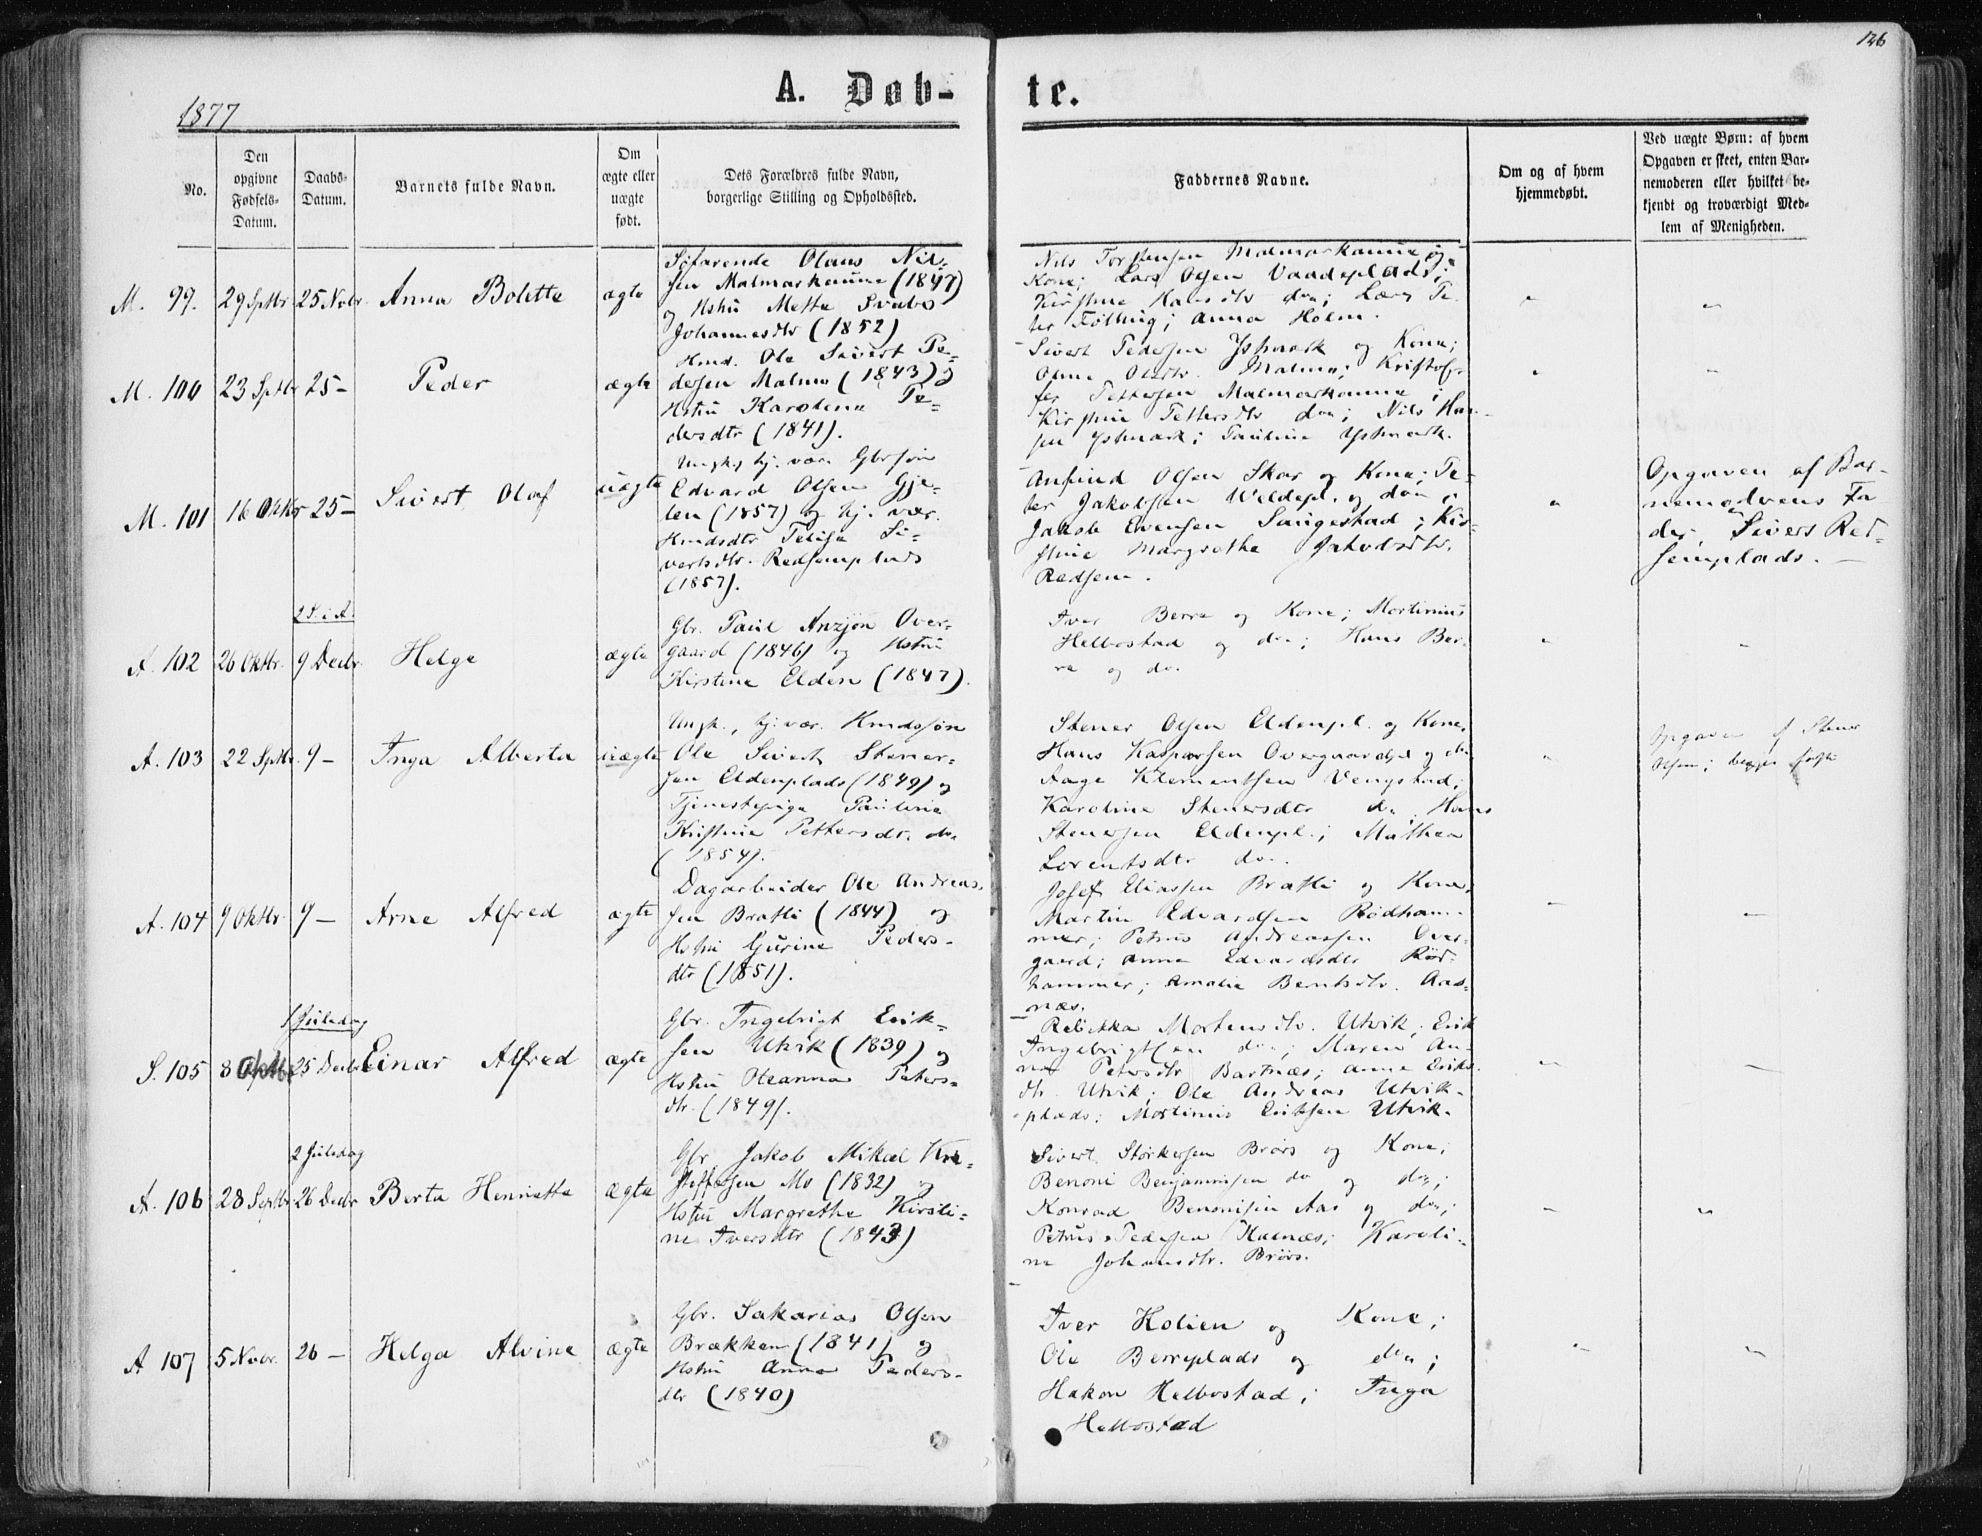 126
1877
A. Døb-
te.
No.
Den opgivne Fødsels-Datum.
Daabs-Datum.
Barnets fulde Navn.
Om ægte eller uægte født.
Dets Forældres fulde Navn, borgerlige Stilling og Opholdssted.
Faddernes Navne.
Om og af hvem hjemmedøbt.
Ved uægte Børn: af hvem Opgaven er skeet, enten Barnemoderen eller hvilket bekjendt og troværdigt Medlem af Menigheden.
M. 99. 29 Sptbr 25 Novbr. Anna Bolette ægte
Søfarende Olaus Nil-
sen Malmarkaune (1847)
og Hstru Mette Svabo
Johannesdtr (1852)
Nils Torstensen Malmarkaune og
Kone; Lars Olsen Vaadeplads;
Kirstine Hansdtr do; Lars Pe-
ter Følling; Anna Holm.
M. 100 23 Sptbr 25 - Peder ægte
Hmd. Ole Sivert Pe-
dersen Malmo (1843) og
Hstru Karolina Pe-
dersdtr (1841).
Sivert Pedersen Ystmark og Kone;
Oline Olsdtr. Malmo; Kristof-
fer Pettersen Malmarkaune;
Kirstine Pettersdtr do; Nils Han-
sen Ystmark; Pauline Ystmark.
M. 101 16 Oktbr 25 - Sivert Olaf uægte
Ungk, hj. vær. Gbrsøn
Edvard Olsen Gjø-
len (1857) og hj. vær.
Hmdsdtr Telise Si-
vertsdtr. Redsemplads
(1857).
Anfind Olsen Skar og Kone; Pe-
ter Jakobsen Veldepl. og do;
Jakob Evensen Saugestad; Kir-
stine Margrethe Jakobsdtr.
Redsem.
Opgaven af Bar-
nemoderens Fa-
der, Sivert Red-
semplads. -
2 S. i A.
A. 102 26 Oktbr. 9 Decbr. Helge ægte
Gbr. Paul Anzjøn Over-
gaard (1846) og Hstru
Kirstine Elden (1847).
Iver Berre og Kone; Mortinius
Helbostad og do; Hans Ber-
re og do.
A. 103 22 Sptbr. 9 - Inga Alberta uægte
Ungk., hj. vær. Hmdssøn
Ole Sivert Stener-
sen Eldenplads (1849) og
Tjenestepige Pauline
Kristine Pettersdtr. do
(1854).
Stener Olsen Eldenpl. og Kone,
Hans Kaspersen Overgaardspl og do
Aage Klementsen Vengstad;
Karoline Stenersdtr do. Hans
Stenersen Eldenpl.; Mathea
Lorentsdtr do.
Opgaven af Stener
Olsen; begge
A. 104 9 Oktbr. 9 - Arne Alfred ægte
Dagarbeider Ole Andreas-
sen Bratli (1844) og
Hstru Gurine Peders-
dtr (1851).
Josef Eliassen Bratli og Kone,
Martin Edvardsen Rødham-
mer; Petrus Andreassen Over-
gaard; Anna Edvardsdtr Rød-
hammer; Amalie Berntsdtr. Aas-
næs.
1 Juledag
S. 105 8 25 Decbr Einar Alfred ægte
Gbr. Ingebrigt Erik-
sen Utvik (1839) og
Hstru Oleanna Peters-
dtr. (1849).
Rebekka Mortensdtr. Utvik; Erik
Ingebrigtsen do; Maren An-
na Petersdtr Bartnæs; Anna Eriks-
dtr. Utvik; Ole Andreas Utvik-
plads; Mortinus Eriksen Utvik.
2 Juledag
A. 106 28 Septbr 26 Decbr Berta Henriette ægte
Gbr Jakob Mikal Kri-
stoffersen Mo (1832) og
Hstru Margrethe Kirsti-
ne Iversdtr (1843)
Sivert Størkersen Brørs og Kone;
Benoni Benjaminsen do og do;
Konrad Benonisen Aas og do;
Petrus Pedersen Halnæs; Karoli-
ne Johansdtr. Brørs.
A 107 5 Novbr. 26 - Helga Alvine ægte
Gbr. Sakarias Olsen
Brækken (1841) og
Hstru Anna Peders-
dtr (1840)
Iver Holien og Kone;
Ole Berreplads og do;
Hakon Helbostad; Inga
Helbostad